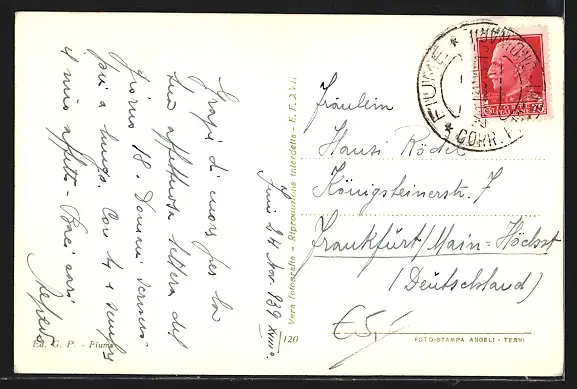 Grazie di cuore per la
tua affettuosa lettera del
giorno 18. Domani scriverò
più a lungo. Con te è sempre
il mio affetto - Baci cari
24 Nov. 939 XVIII.
Ed. G. P. - Fiume
Vera fotografia - Riproduzione interdetta - E. F.
120
FIUME
CORR.
Fräulein
Hansi Rödel
Königsteinerstr. 7
Frankfurt/Main=Höchst
(Deutschland)
€5,-
FOTO-STAMPA ANGELI - TERNI